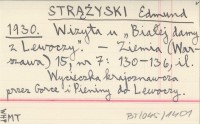 STRĄŻYSKI Edmund
1930. Wizyta u „Białej damy
z Lewoczy". – Ziemia (War-
szawa) 15, nr 7: 130-136, il.
Wycieczka krajoznawcza
przez Gorce i Pieniny do Lewoczy.
MT